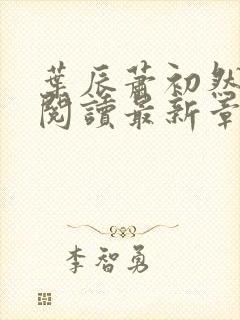 葉辰蕭初然
閱讀最新章
李智勇